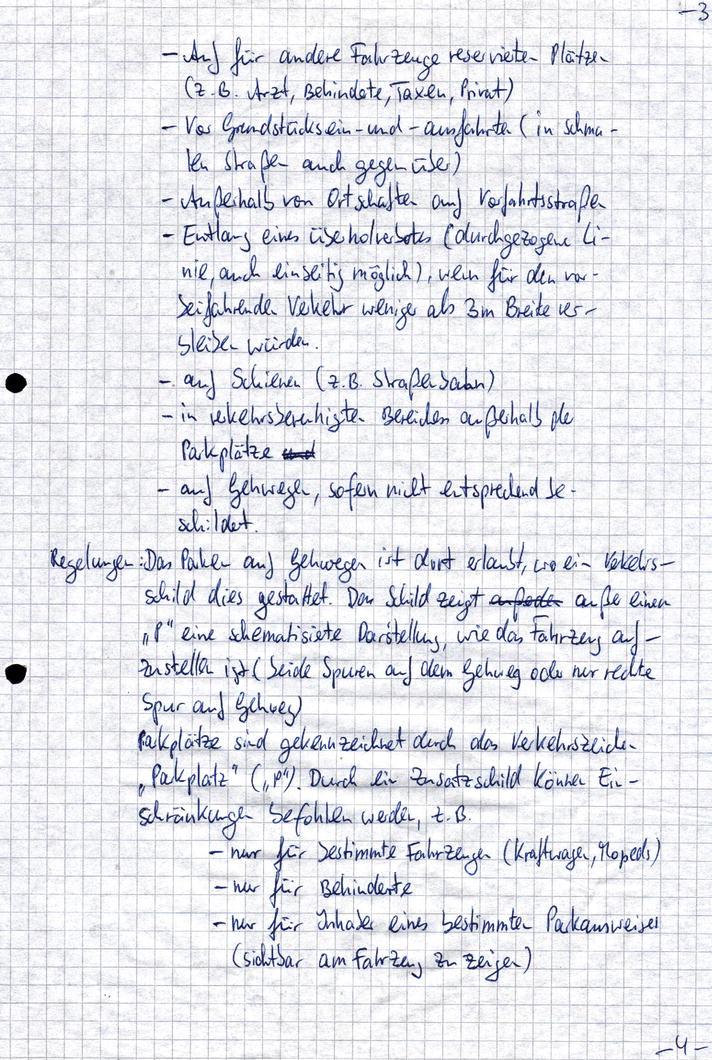 -3
- Auf für andere Fahrzeuge reservierten Plätzen
(z.B. Arzt, Behinderte, Taxen, Privat)
- Vor Grundstücksein-und-ausfahrten (in schma-
len Straßen auch gegenüber)
- Außerhalb von Ortschaften auf Vorfahrtsstraßen
- Entlang eines Überholverbotes (durchgezogene Li-
nie, auch einseitig möglich), wenn für den vor-
beifahrenden Verkehr weniger als 3m Breite ver-
bleiben würden.
- auf Schienen (z.B. Straßenbahn)
- in verkehrsberuhigten Bereichen außerhalb der
Parkplätze
- auf Gehwegen, sofern nicht entsprechend be-
schildert.
Regelungen: Das Parken auf Gehwegen ist dort erlaubt, wo ein Verkehrs-
schild dies gestattet. Das Schild zeigt außer einem
„P" eine schematisierte Darstellung, wie das Fahrzeug auf-
zustellen ist (beide Spuren auf dem Gehweg oder nur rechte
Spur auf Gehweg)
Parkplätze sind gekennzeichnet durch das Verkehrszeichen
„Parkplatz" („P"). Durch ein Zusatzschild können Ein-
schränkungen befohlen werden, z.B.
- nur für bestimmte Fahrzeugen (Kraftwagen, Mopeds)
- nur für Behinderte
- nur für Inhaber eines bestimmten Parkausweises
(sichtbar am Fahrzeug zu zeigen)
-4-